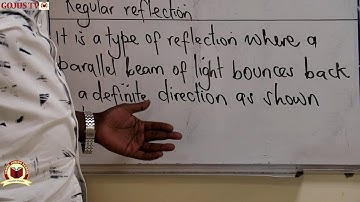 GOJUS TV
Regular reflection
It is a type of reflection where a
parallel beam of light bounces back
a definite direction as shown